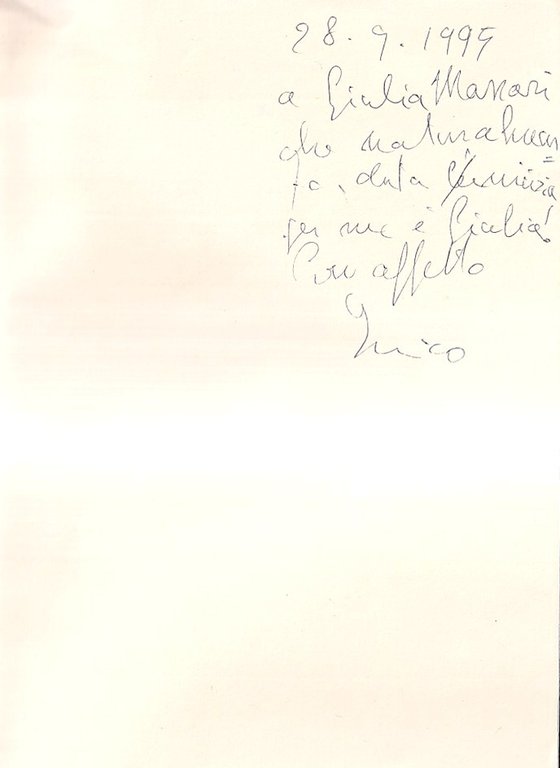 28.9.1995
a Giulia Massari
che naturalmen=
te, data l'amicizia
per me è Giulia!
Con affetto
Enrico